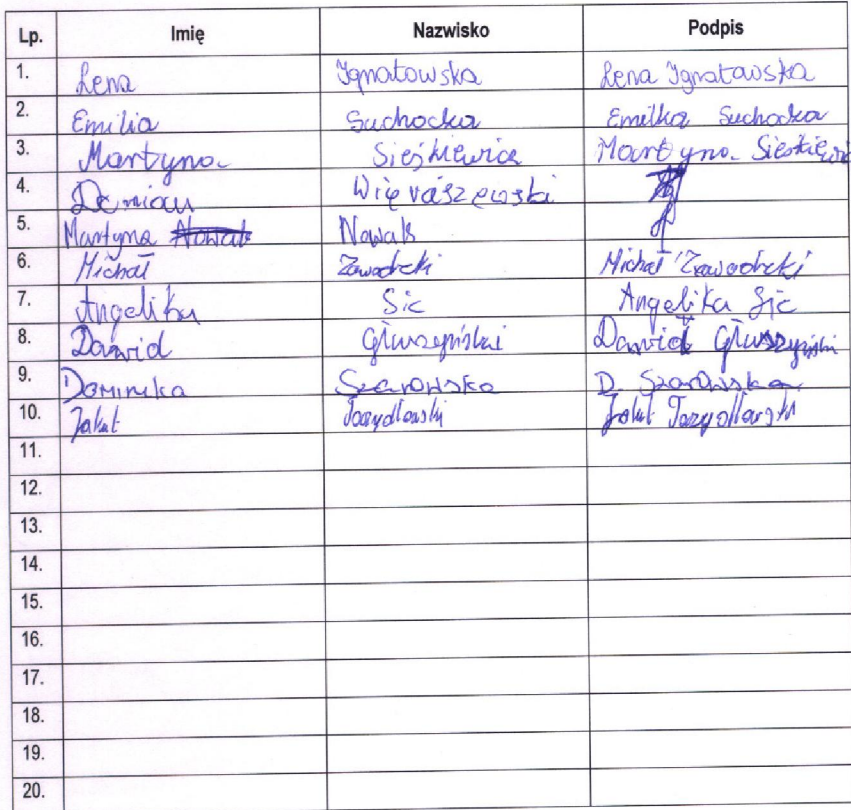 Lp. Imię Nazwisko Podpis
1. Lena Ignatowska Lena Ignatowska
2. Emilia Suchocka Emilka Suchocka
3. Martyna Sieśkiewicz Martyna Sieśkiewicz
4. Damian
5. Martyna Nowak Nowak
6. Michał Zawadzki Michał Zawadzki
7. Angelika Sic Angelika Sic
8. Dawid Głuszyński Dawid Głuszyński
9. Dominika Szarowska D. Szarowska
10. Jakub Jakub
11.
12.
13.
14.
15.
16.
17.
18.
19.
20.